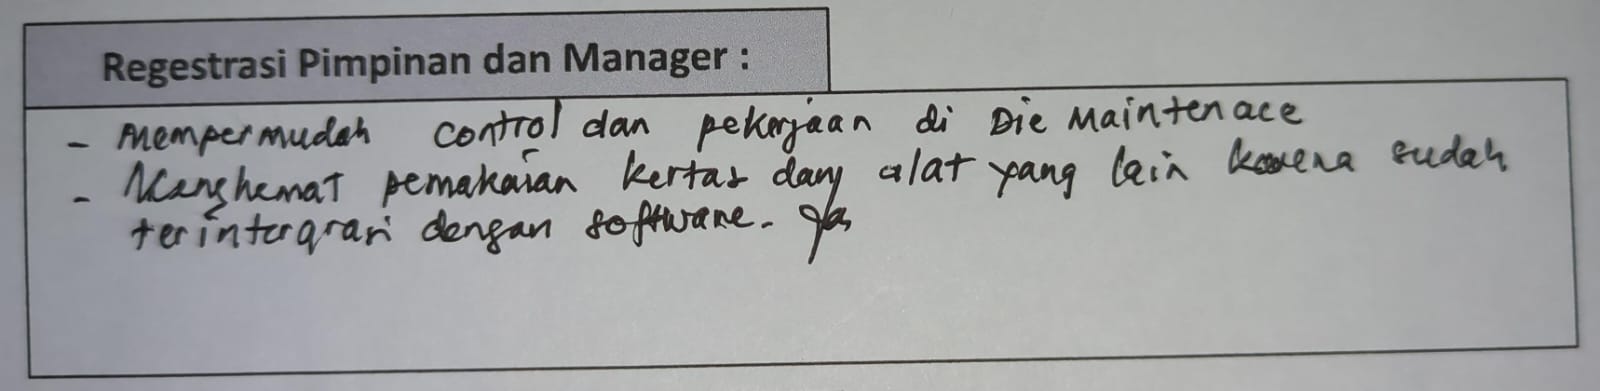 Regestrasi Pimpinan dan Manager :
- Mempermudah control dan pekerjaan di Die Maintenace
- Menghemat pemakaian kertas dan alat yang lain karena sudah
terintergrasi dengan software.